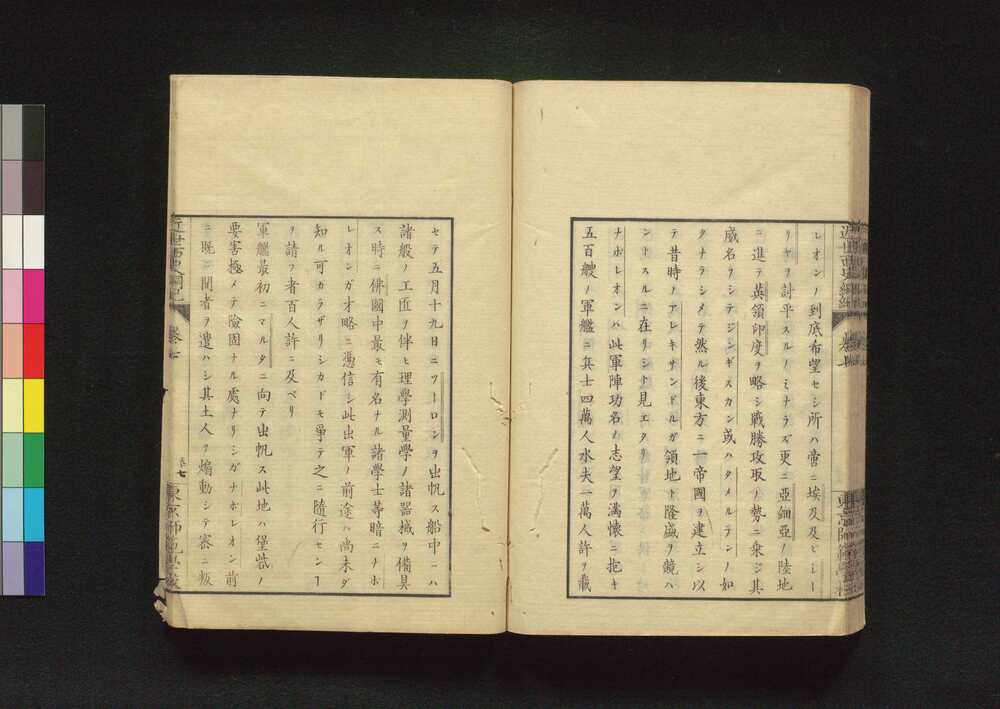 レオンノ到底希望セシ所ハ啻ニ埃及及ビシ
リヤヲ討平スルノミナラズ更ニ亞細亞ノ陸地
ニ進テ英領印度ヲ略シ戰勝攻取ノ勢ニ乗ジ其
威名ヲシテジンギスカン或ハタメルテンノ如
クナラシメテ然ル後東方ニ一帝國ヲ建立シ以
テ昔時ノアレキサンドルガ領地ト隆盛ヲ競ハ
ントスルニ在リシト見エタリ
ナポレオンハ此軍陣功名ノ志望ヲ滿懐ニ抱キ
五百艘ノ軍艦ニ兵士四萬人水夫一萬人許ヲ載
セテ五月十九日ニツーロンヲ出帆ス船中ニハ
諸般ノ工匠ヲ伴ヒ理學測量學ノ諸器械ヲ備具
ス時ニ佛國中最モ有名ナル諸學士等暗ニナポ
レオンガ才略ニ憑信シ此出軍ノ前途ハ尚未ダ
知ル可カラザリシカドモ爭テ之ニ隨行セン
ヿヲ請フ者百人許ニ及ベリ
軍艦最初ニマルタニ向テ出帆ス此地ハ堡砦ノ
要害極メテ險固ナル處ナリシガナポレオン前
ニ既ニ間者ヲ遣ハシ其土人ヲ煽動シテ審ニ叛
近世西史綱紀
卷七
七
東京師範學校